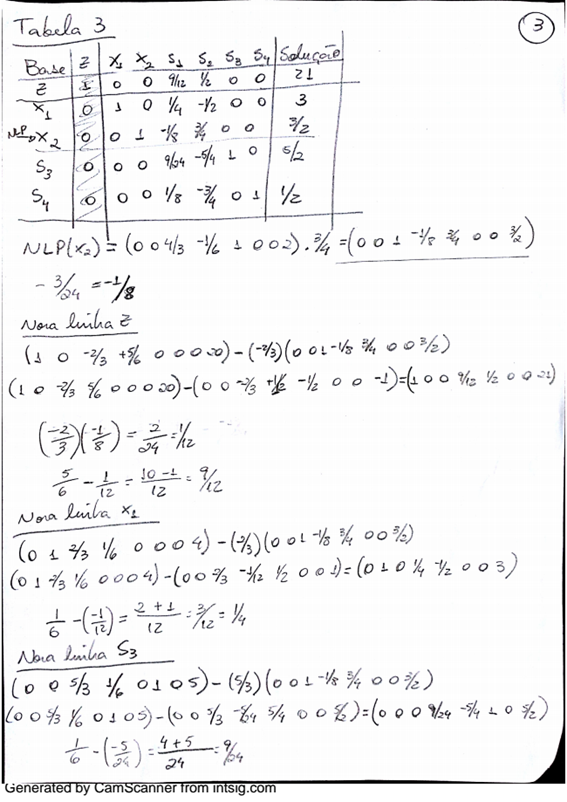 Tabela 3
3
Base Z X₁ X₂ S₁ S₂ S₃ S₄ Solução
Z 1 0 0 9/12 1/2 0 0 21
X₁ 0 1 0 1/4 -1/2 0 0 3
NLP X₂ 0 0 1 -1/8 3/4 0 0 3/2
S₃ 0 0 0 9/24 -5/4 1 0 5/2
S₄ 0 0 0 1/8 -3/4 0 1 1/2
NLP(X₂) = (0 0 4/3 -1/6 1 0 0 2) . 3/4 = (0 0 1 -1/8 3/4 0 0 3/2)
- 3/24 = -1/8
Nova linha Z
(1 0 -2/3 +5/6 0 0 0 20) - (-2/3)(0 0 1 -1/8 3/4 0 0 3/2)
(1 0 -2/3 5/6 0 0 0 20) - (0 0 -2/3 +1/12 -1/2 0 0 -1) = (1 0 0 9/12 1/2 0 0 21)
(-2/3)(-1/8) = 2/24 = 1/12
5/6 - 1/12 = 10-1/12 = 9/12
Nova linha X₁
(0 1 2/3 1/6 0 0 0 4) - (2/3)(0 0 1 -1/8 3/4 0 0 3/2)
(0 1 2/3 1/6 0 0 0 4) - (0 0 2/3 -1/12 1/2 0 0 1) = (0 1 0 1/4 -1/2 0 0 3)
1/6 - (-1/12) = 2+1/12 = 3/12 = 1/4
Nova linha S₃
(0 0 5/3 1/6 0 1 0 5) - (5/3)(0 0 1 -1/8 3/4 0 0 3/2)
(0 0 5/3 1/6 0 1 0 5) - (0 0 5/3 -5/24 5/4 0 0 5/2) = (0 0 0 9/24 -5/4 1 0 5/2)
1/6 - (-5/24) = 4+5/24 = 9/24
Generated by CamScanner from intsig.com